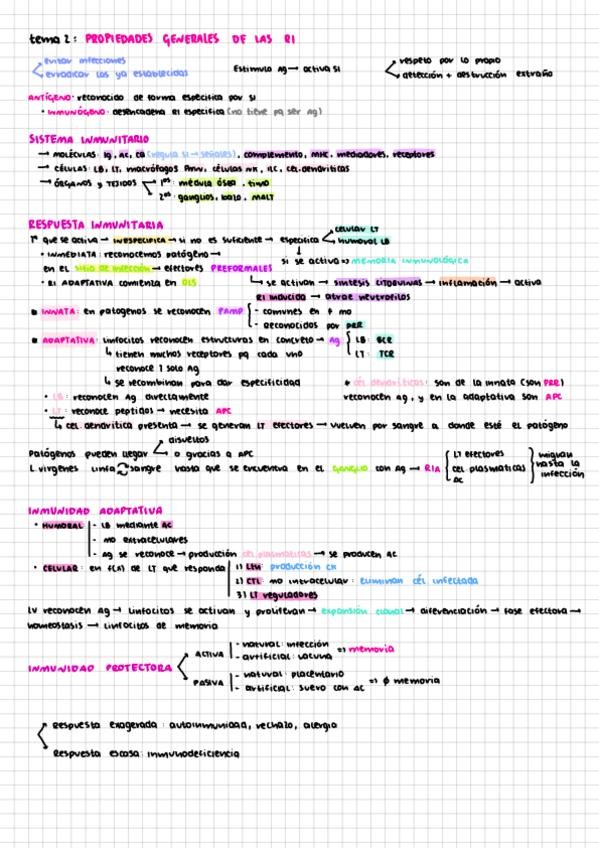 tema 2: PROPIEDADES GENERALES DE LAS RI
evitar infecciones
erradicar las ya establecidas
Estimulo Ag → activa SI
respeto por lo propio
detección + destrucción extraño
ANTÍGENO: reconocido de forma específica por SI
• INMUNÓGENO: desencadena RI específica (no tiene pq ser Ag)
SISTEMA INMUNITARIO
→ MOLÉCULAS: Ig, AC, CK (regula SI → señales), complemento, MHC, mediadores, receptores
→ CÉLULAS: LB, LT, macrófagos, PMN, células NK, ILC, cel. dendríticas
→ ÓRGANOS y TEJIDOS
1os: médula ósea, timo
2os: ganglios, bazo, MALT
RESPUESTA INMUNITARIA
1º que se activa → INESPECÍFICA → si no es suficiente → específica
celular LT
humoral LB
• INMEDIATA: reconocemos patógeno →
en el sitio de infección → efectores PREFORMALES
si se activa => MEMORIA INMUNOLÓGICA
• RI ADAPTATIVA comienza en OLS
↳ se activan → síntesis citoquinas → inflamación → activa
RI inducida → atrae neutrófilos
INNATA: en patógenos se reconocen PAMP
- comunes en ≠ mo
- Reconocidos por PRR
ADAPTATIVA: linfocitos reconocen estructuras en concreto → Ag
LB: BCR
LT: TCR
↳ tienen muchos receptores pq cada uno
reconoce 1 solo Ag
↳ se recombinan para dar especificidad
* cél. dendríticas: son de la innata (son PRR)
reconocen Ag, y en la adaptativa son APC
• LB: reconocen Ag directamente
• LT: reconoce peptidos → necesita APC
↳ cel. dendrítica presenta → se generan LT efectores → vuelven por sangre a donde esté el patógeno
Patógenos pueden llegar
disueltos
o gracias a APC
L. vírgenes linfa sangre hasta que se encuentra en el GANGLIO con Ag → RIA
LT efectores
cel plasmáticas
AC
migran hasta la infección
INMUNIDAD ADAPTATIVA
• HUMORAL
- LB mediante AC
- mo extracelulares
- Ag se reconoce → producción cel plasmáticas → se producen AC
• CELULAR: en f(x) de LT que responda
1) LTH: producción CK
2) CTL: mo intracelular: eliminan cél infectada
3) LT reguladores
LV reconocen Ag → linfocitos se activan y proliferan → expansión clonal → diferenciación → fase efectora →
homeostasis → linfocitos de memoria
INMUNIDAD PROTECTORA
ACTIVA
- natural: infección
- artificial: vacuna
=> memoria
PASIVA
- natural: placentario
- artificial: suero con AC
=> ∅ memoria
Respuesta exagerada: autoinmunidad, rechazo, alergia
Respuesta escasa: inmunodeficiencia